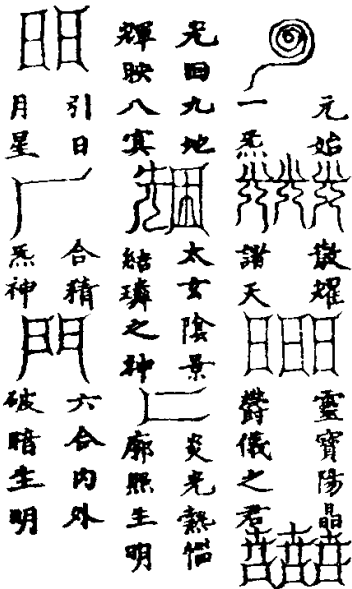 元始
一炁
耀
諸天
靈寶陽晶
鬱儀之君
光回九地
輝映八冥
太玄陰景
結璘之神
炎光熱惱
廓照生明
引日
月星
合精
炁神
六合内外
破暗生明